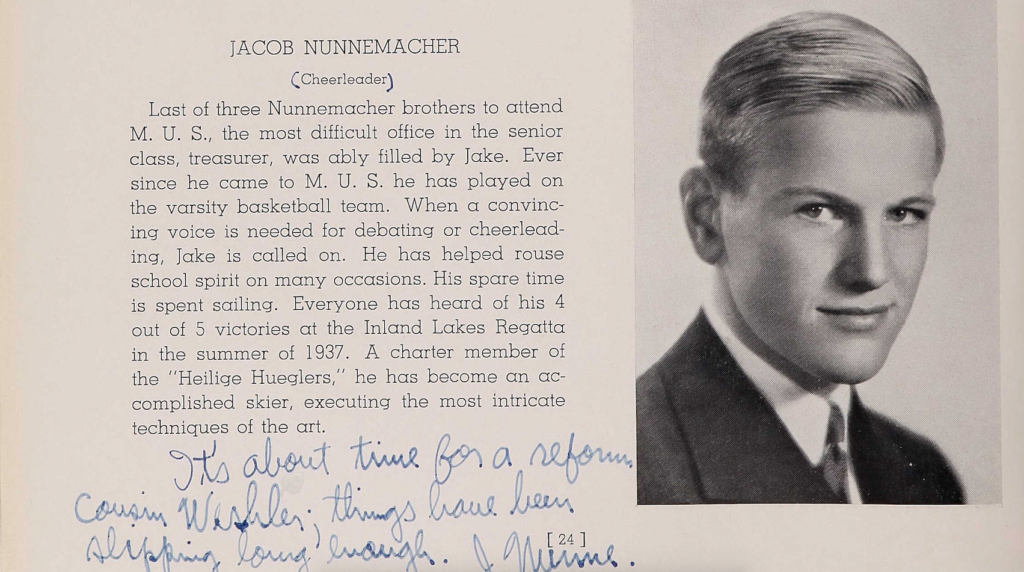 JACOB NUNNEMACHER
(Cheerleader)
Last of three Nunnemacher brothers to attend
M. U. S., the most difficult office in the senior
class, treasurer, was ably filled by Jake. Ever
since he came to M. U. S. he has played on
the varsity basketball team. When a convinc-
ing voice is needed for debating or cheerlead-
ing, Jake is called on. He has helped rouse
school spirit on many occasions. His spare time
is spent sailing. Everyone has heard of his 4
out of 5 victories at the Inland Lakes Regatta
in the summer of 1937. A charter member of
the "Heilige Hueglers," he has become an ac-
complished skier, executing the most intricate
techniques of the art.
It's about time for a reform
Cousin ; things have been
slipping long enough. J.
[ 24 ]